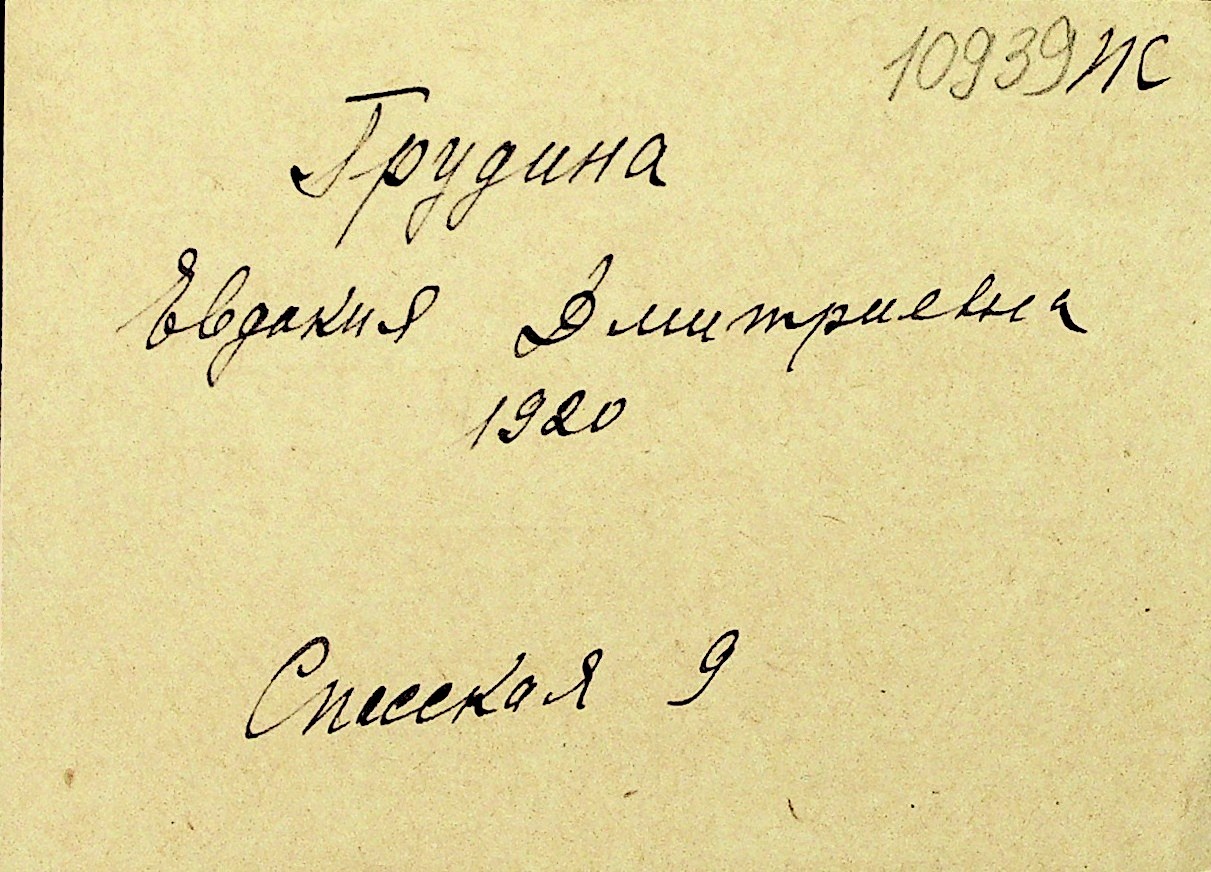 10939 ПС
Грудина
Евдокия Дмитриевна
1920
Спасская 9